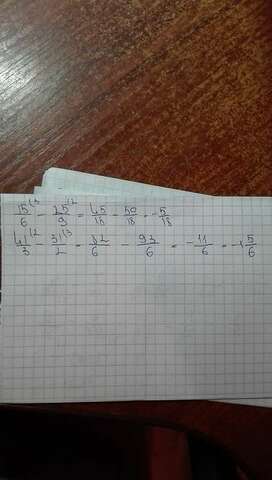 15/6 (3 - 25/9 (2 = 45/18 - 50/18 = -5/18
41/3 (2 - 31/2 (3 = 82/6 - 93/6 = -11/6 = -1 5/6